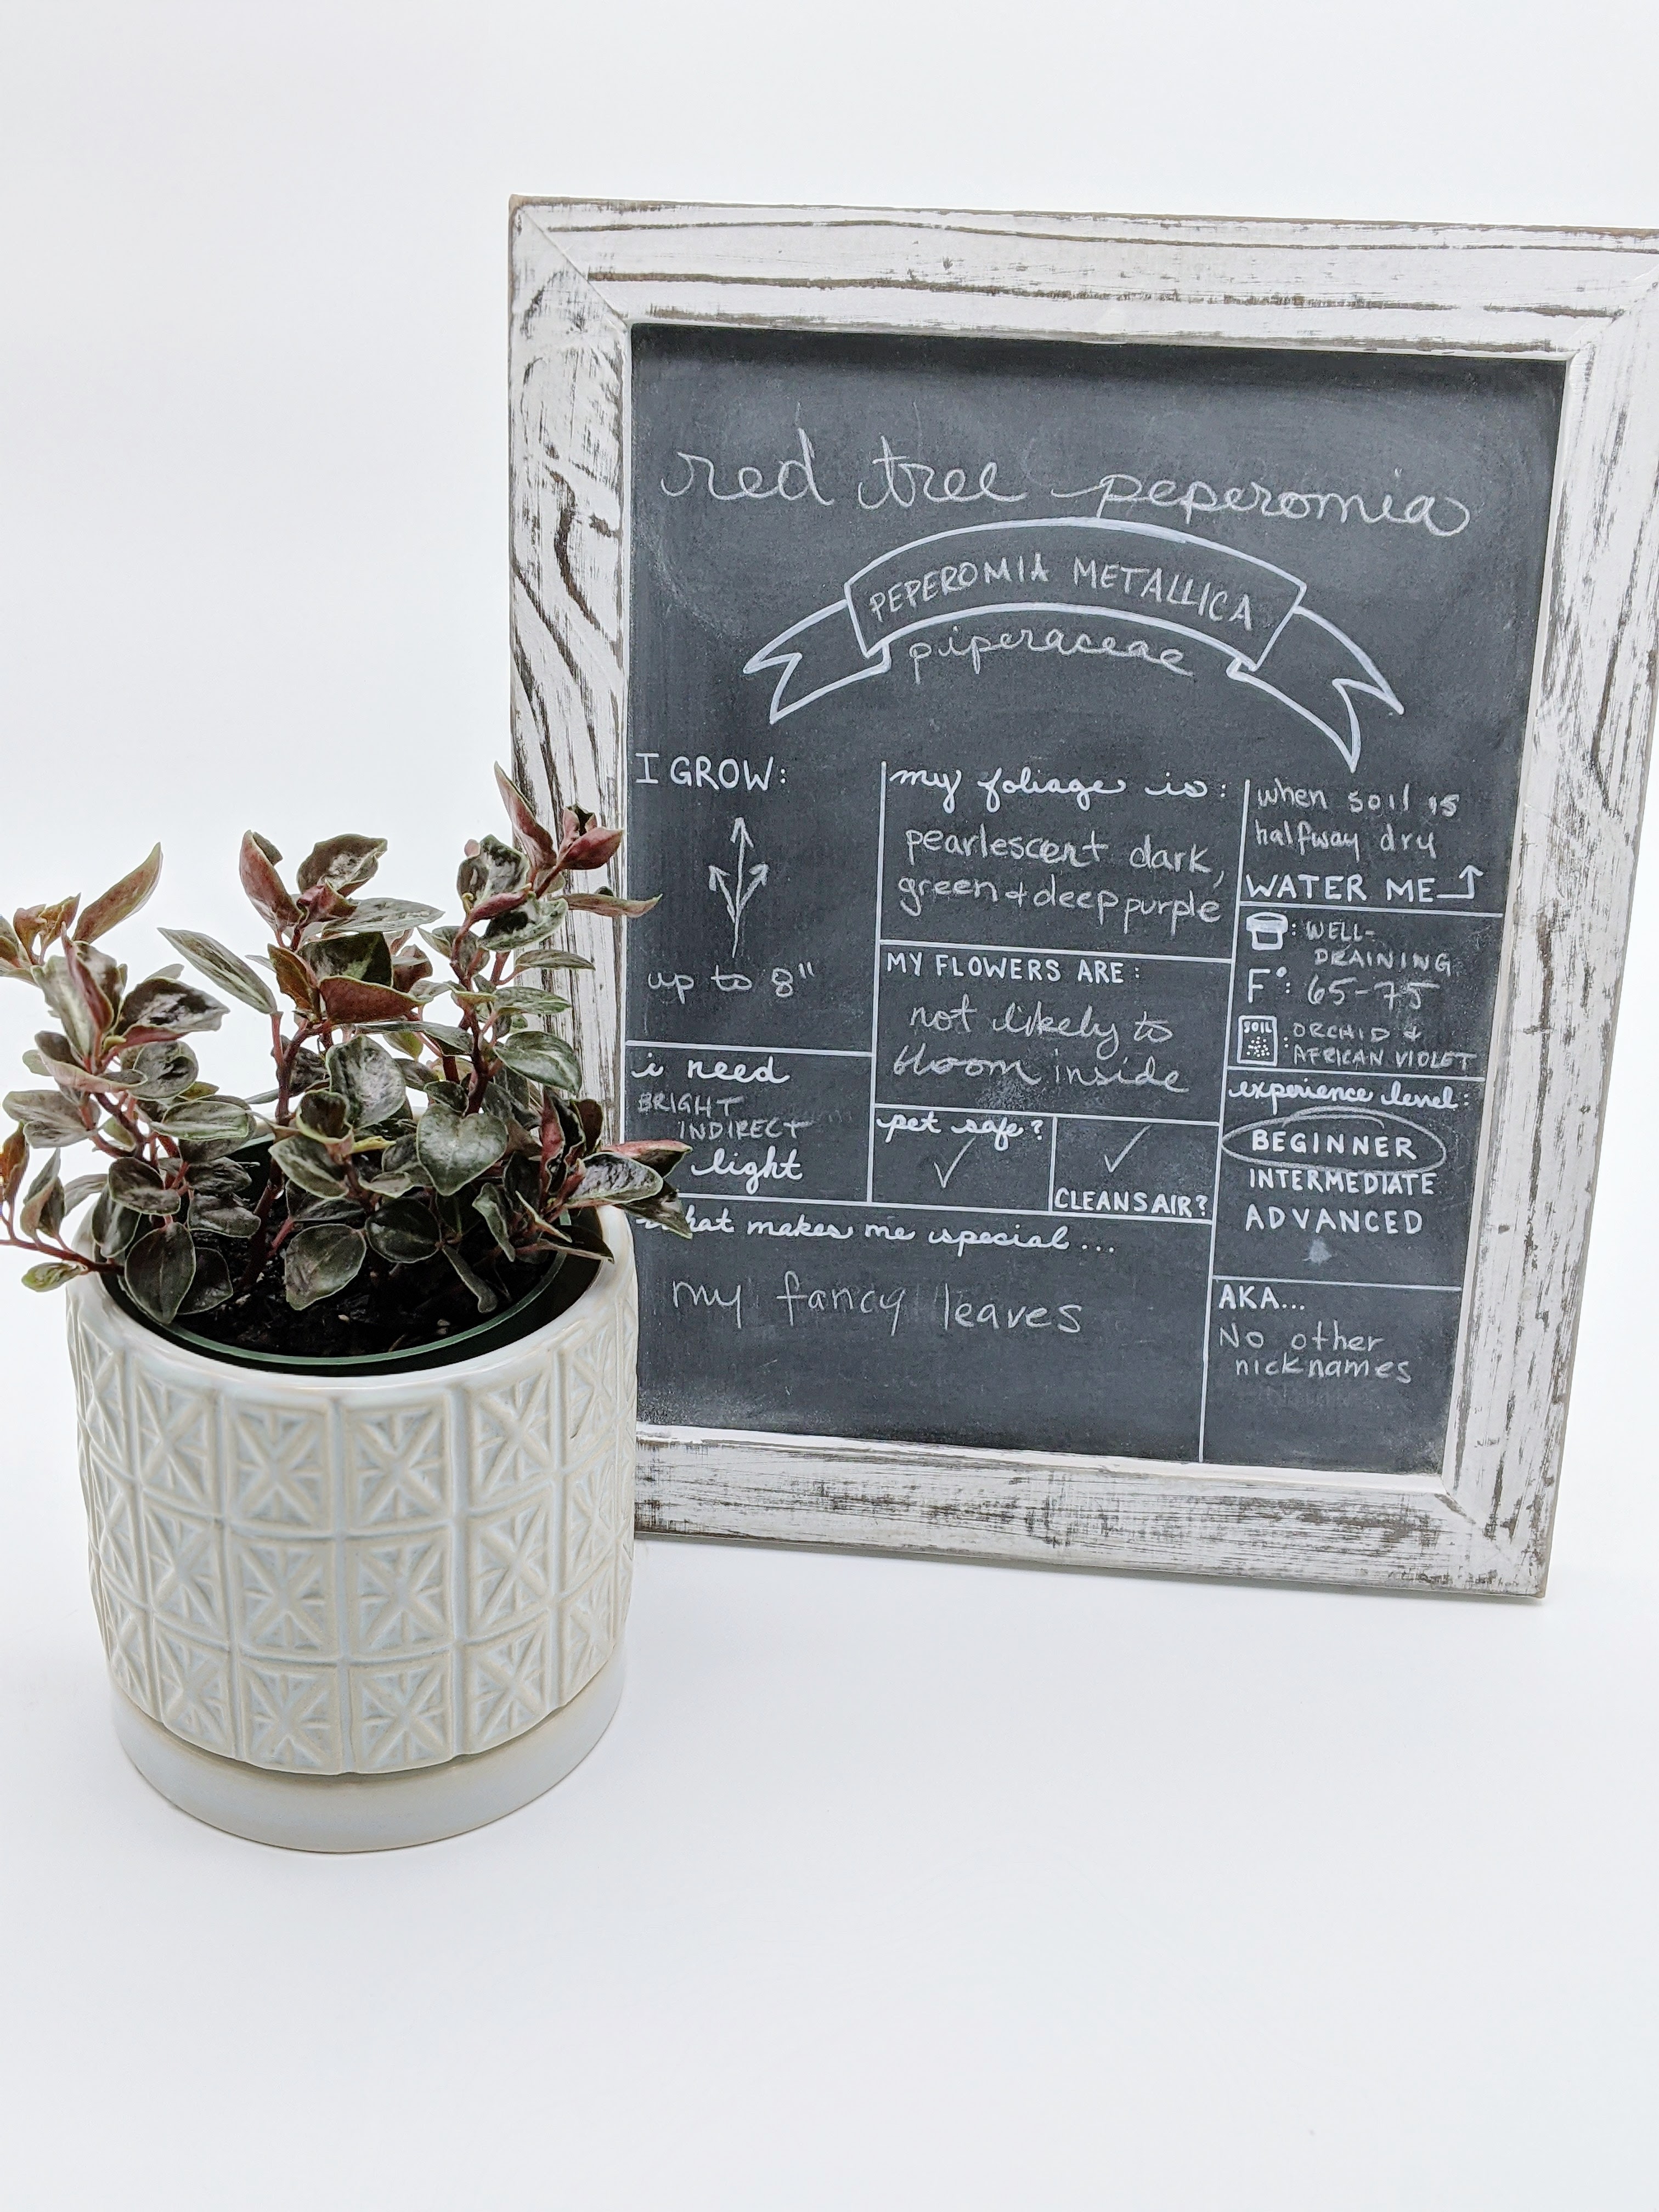 red tree peperomia
PEPEROMIA METALLICA
piperaceae
I GROW:
up to 8"
i need
BRIGHT
INDIRECT
light
my foliage is:
pearlescent dark,
green + deep purple
MY FLOWERS ARE:
not likely to
bloom inside
pet safe?
✓
✓
CLEANS AIR?
what makes me special...
my fancy leaves
when soil is
halfway dry
WATER ME
: WELL-
DRAINING
F°: 65-75
SOIL : ORCHID &
AFRICAN VIOLET
experience level:
BEGINNER
INTERMEDIATE
ADVANCED
AKA...
No other
nicknames